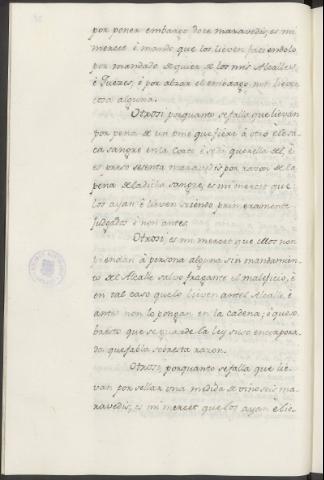 por poner embargo doce maravedis, es mi
merced é mando que los lieven faciendolo
por mandado de qualquier de los mis Alcalles,
é Jueces, é por alzar el embargo, non lieven
cosa alguna.
Otrosi porquanto se falla que lievan
por pena de un ome que fiere á otro é le sa
ca sangre en la Corte é se dá querella de él, é
es preso sesenta maravedis por razon de la
pena de la dicha sangre, es mi merced que
los ayan é lieven siendo primeramente
judgados é non antes.
Otrosi es mi merced que ellos non
prendan á persona alguna sin mandamien
to del Alcalle salvo fragante el maleficio, é
en tal caso que lo lieven antel Alcalle, é
ante non lo pongan en la cadena; é que so
bresto que se guarde la ley suso encorpora
da que fabla sobresta razon.
Otrosi, porquanto se falla que lie
van por sellar una medida de vino seis ma
ravedis, es mi merced que los ayan é lie